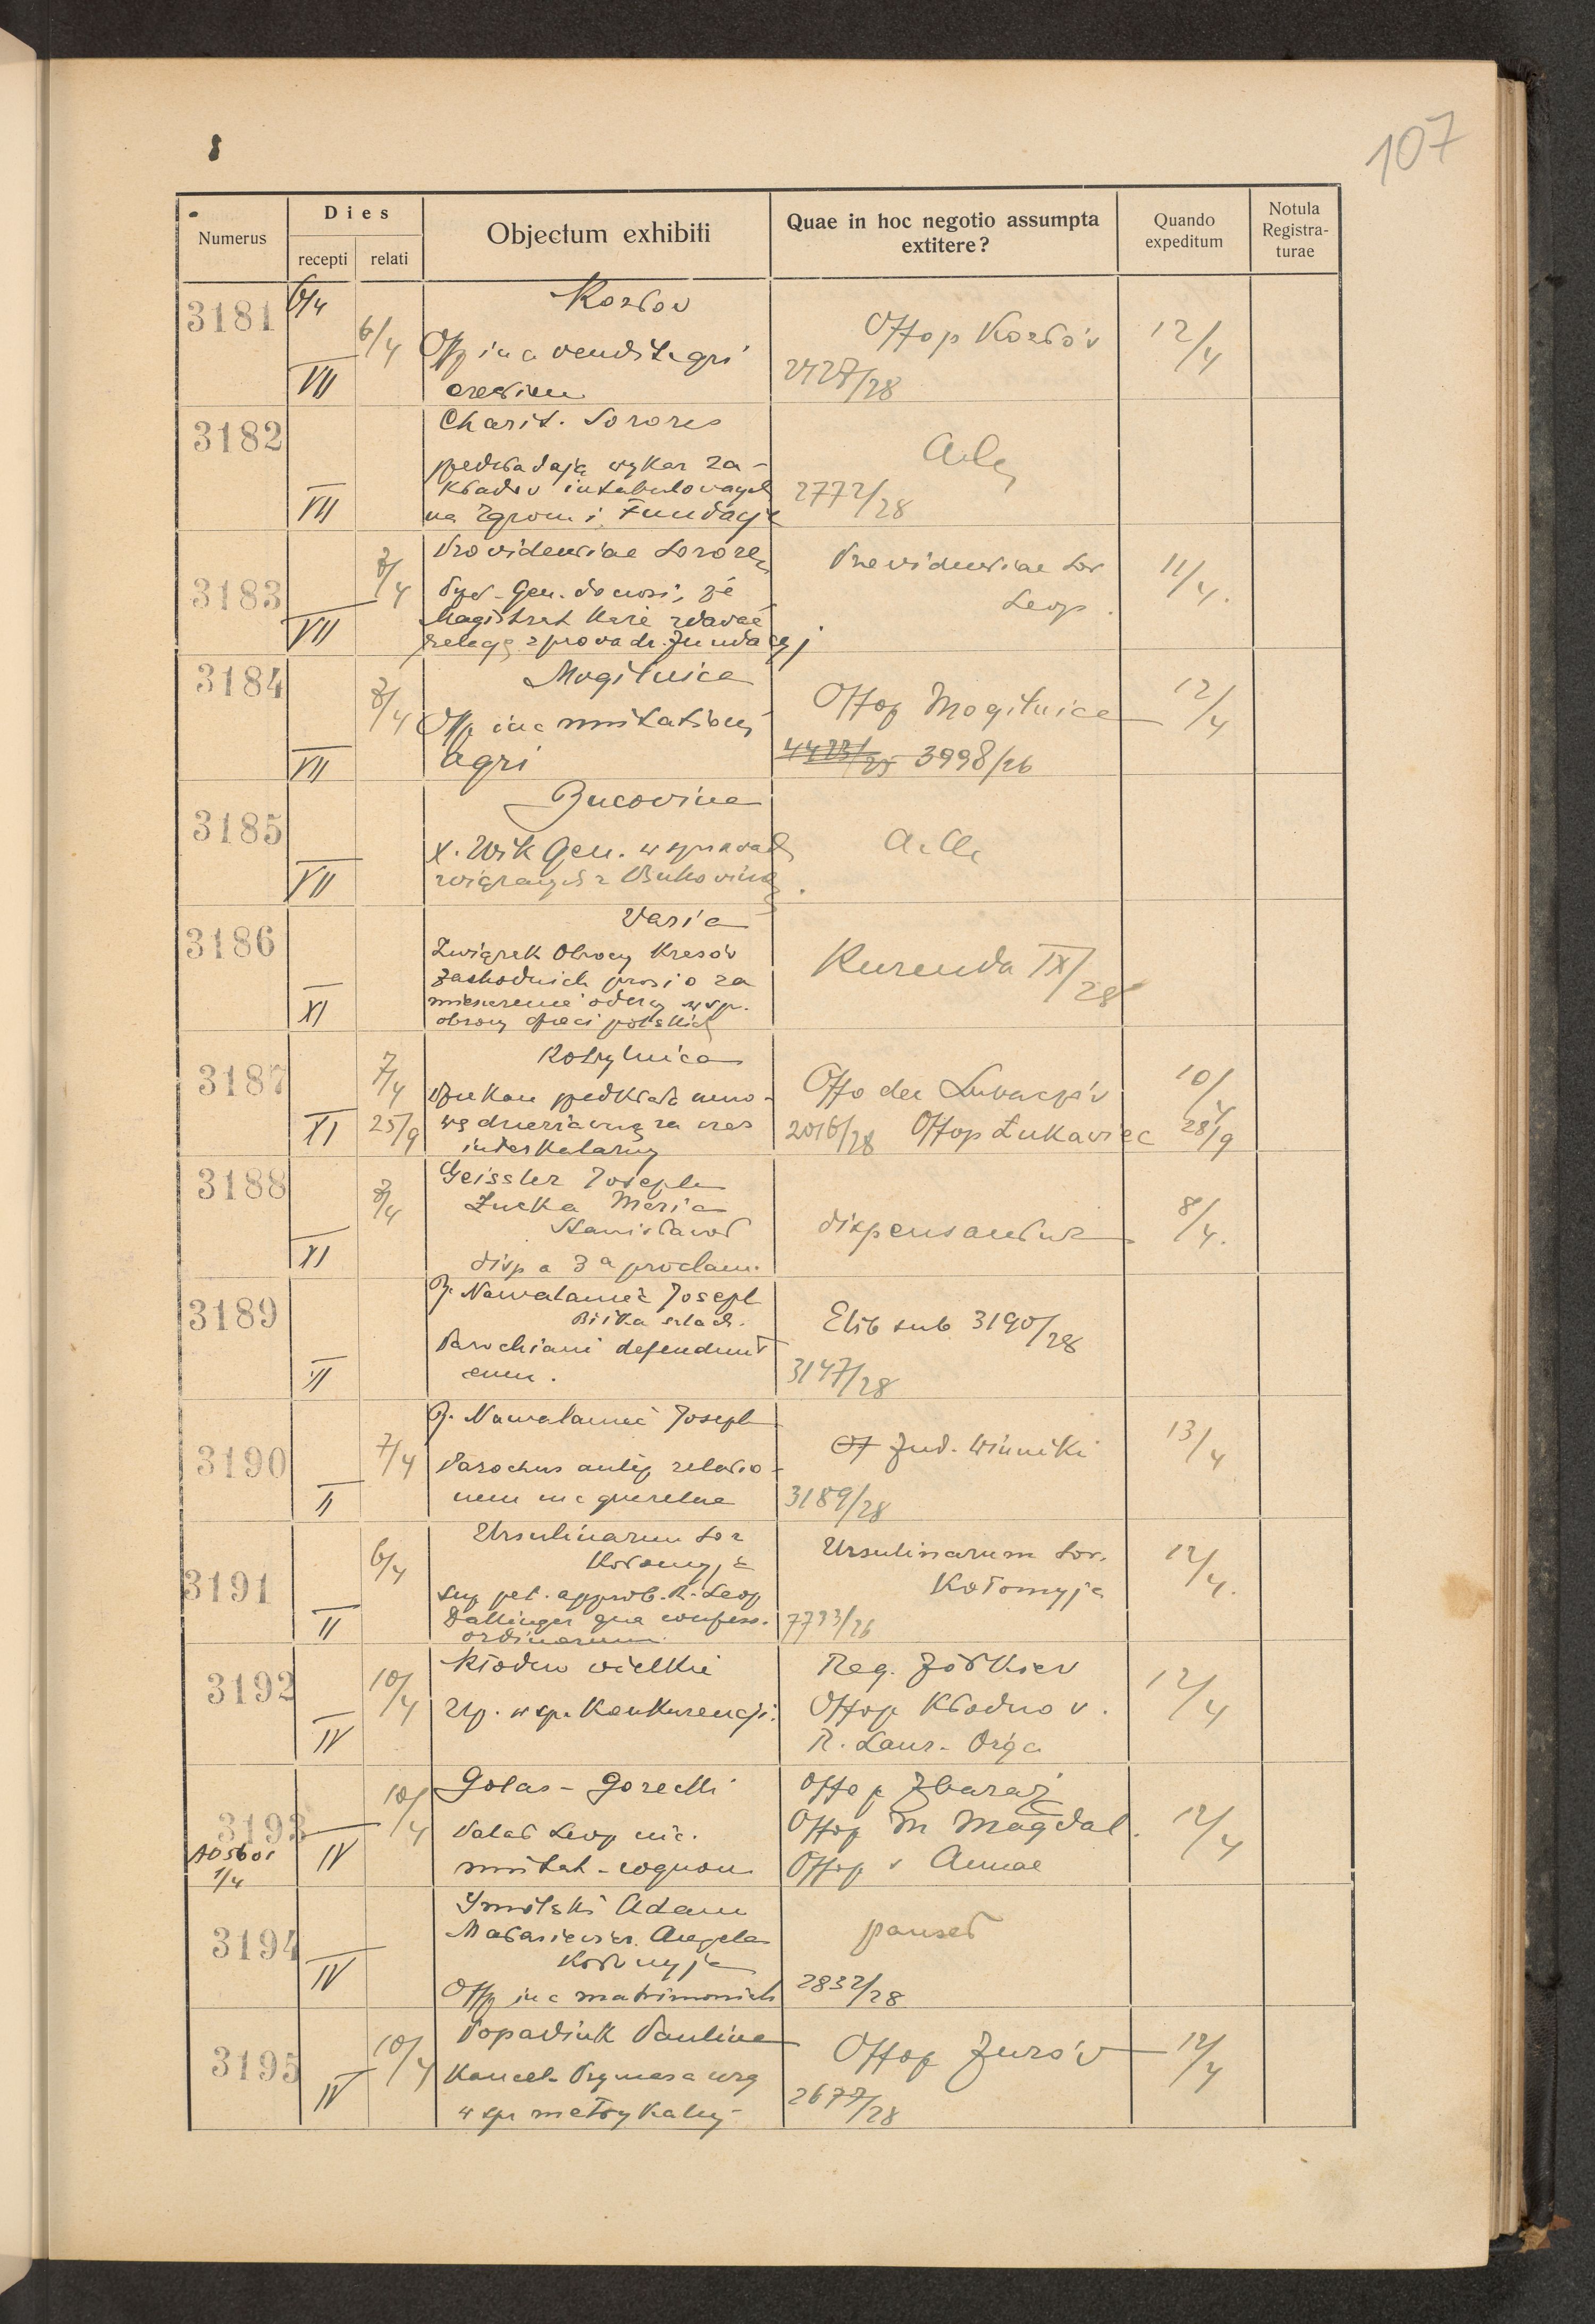 107
Numerus
Dies
recepti
relati
Objectum exhibiti
Quae in hoc negotio assumpta extitere?
Quando expeditum
Notula Registra-
turae
3181
6/4
6/4
VII
Kozłov
Offp in c vendit agri
Offop Kozłów
2427/28
12/4
3182
VII
Charit. Sorores
przedkładają wykaz za-
kładów intabulowanych
na Zgrom i Fundacje
2772/28
3183
VII
Providentiae Sorores
donosi, że
Magistrat każe zdawać
Providentiae Sor
Leop.
11/4.
3184
VII
Mogilnica
Offp in c mutationis
agri
Offop Mogilnica
3998/26
12/4
3185
VII
Bucovina
X. Wik Gen. w sprawach
związanych z Bukowiną.
3186
XI
Varia
Związek Obrony Kresów
Zachodnich prosi o za
mieszczenie odezwy w sp.
obrony dzieci polskich
Kurenda IX/28
3187
7/4
XI
25/9
Kobylnica
Dziekan przedkłada umo-
wę dzierżawną za czas
interkalarny
Offo dec Lubaczów
2016/28 Offop Łukawiec
10/4
28/9
3188
XI
Geissler Joseph
Maria
Stanisławów
disp a 3a proclam.
dispensantur
8/4.
3189
II
R. Nawalaniec Joseph
Bilka szlach.
Parochiani defendunt
eum.
Elib sub 3190/28
3147/28
3190
7/4
II
R. Nawalaniec Joseph
Parochus relatio-
nem in c querelae
Winniki
3189/28
13/4
3191
6/4
II
Ursulinarum Sor
Kołomyja
sup pet. approb. R. Leop
Dallinger qua confess.
ordinarium.
Ursulinarum Sor.
Kołomyja
7733/26
12/4.
3192
10/4
IV
Kłodno wielkie
w sp. Konkurencji.
Reg. Żółkiew
Offop Kłodno v.
12/4
3193
10/4
IV
1/4
Golas - Gorecki
Palat Leop in c.
mutat - cognom
Offop Zbaraż
Offop M Magdal.
Offop s Annae
12/4
3194
IV
Smolski Adam
Angela
Kołomyja
Offp in c matrimonii
2832/28
3195
10/4
IV
Popadiuk Paulina
Kancel. Prymasa
w sp metrykalnej
Offop Żurów
2677/28
12/4